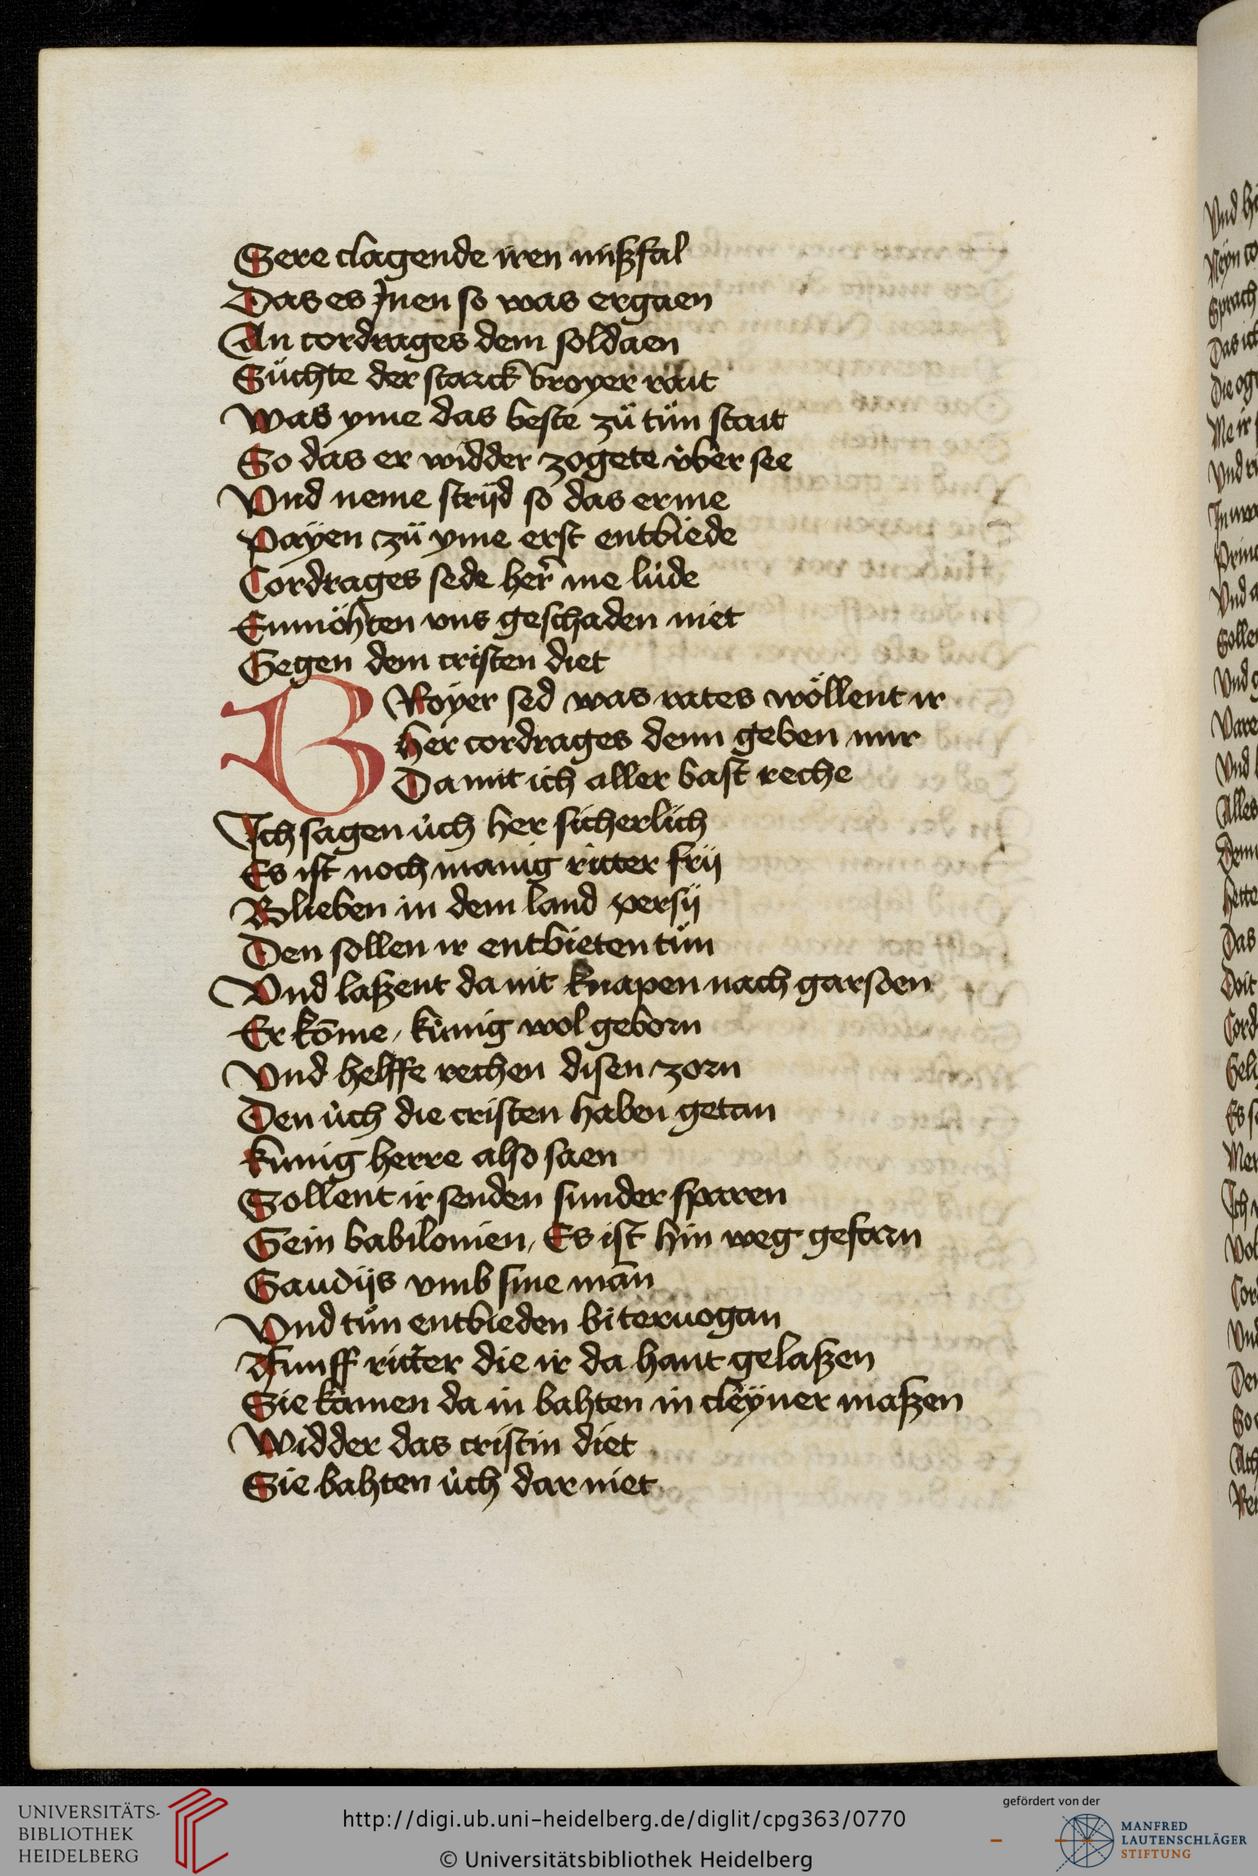 Sere clagende iren mißfal
Das es Jnen so was ergaen
An cordrages dem soldaen
Sůchte der starck broyer rait
Was yme das beste zů tůn stait
So das er widder zogete v̊ber see
Vnd neme strijd so das er me
Payen zů yme erst entbiede
Cordrages sede her̃ me lůde
Enmöhten vns geschaden niet
Gegen dem cristen diet
BRoyer sed was rates wöllent ir
Her cordrages denn geben mir
Da mit ich aller bast reche
Ich sagen ůch her sicherlich
Es ist noch manig ritter frij
Blieben in dem land persij
Den sollen ir entbieten tůn
Vnd laßent da mit knapen nach garsoen
Er kōme, kůnig wol geborn
Vnd helffe rechen disen zorn
Den ůch die cristen haben getan
Kunig herre also saen
Sollent ir senden sunder sparen
Gein babilonien, Es ist hin weg gefarn
Gaudijs vmb sine man
Vnd tůn entbieden biteruogan
Funff ritter die ir da hant gelaßen
Sie kamen da in bahten in cleÿner maßen
Widder das cristin diet
Sie bahten ůch dar niet
UNIVERSITÄTS-
BIBLIOTHEK
HEIDELBERG
http://digi.ub.uni-heidelberg.de/diglit/cpg363/0770
© Universitätsbibliothek Heidelberg
gefördert von der
MANFRED
LAUTENSCHLÄGER
STIFTUNG